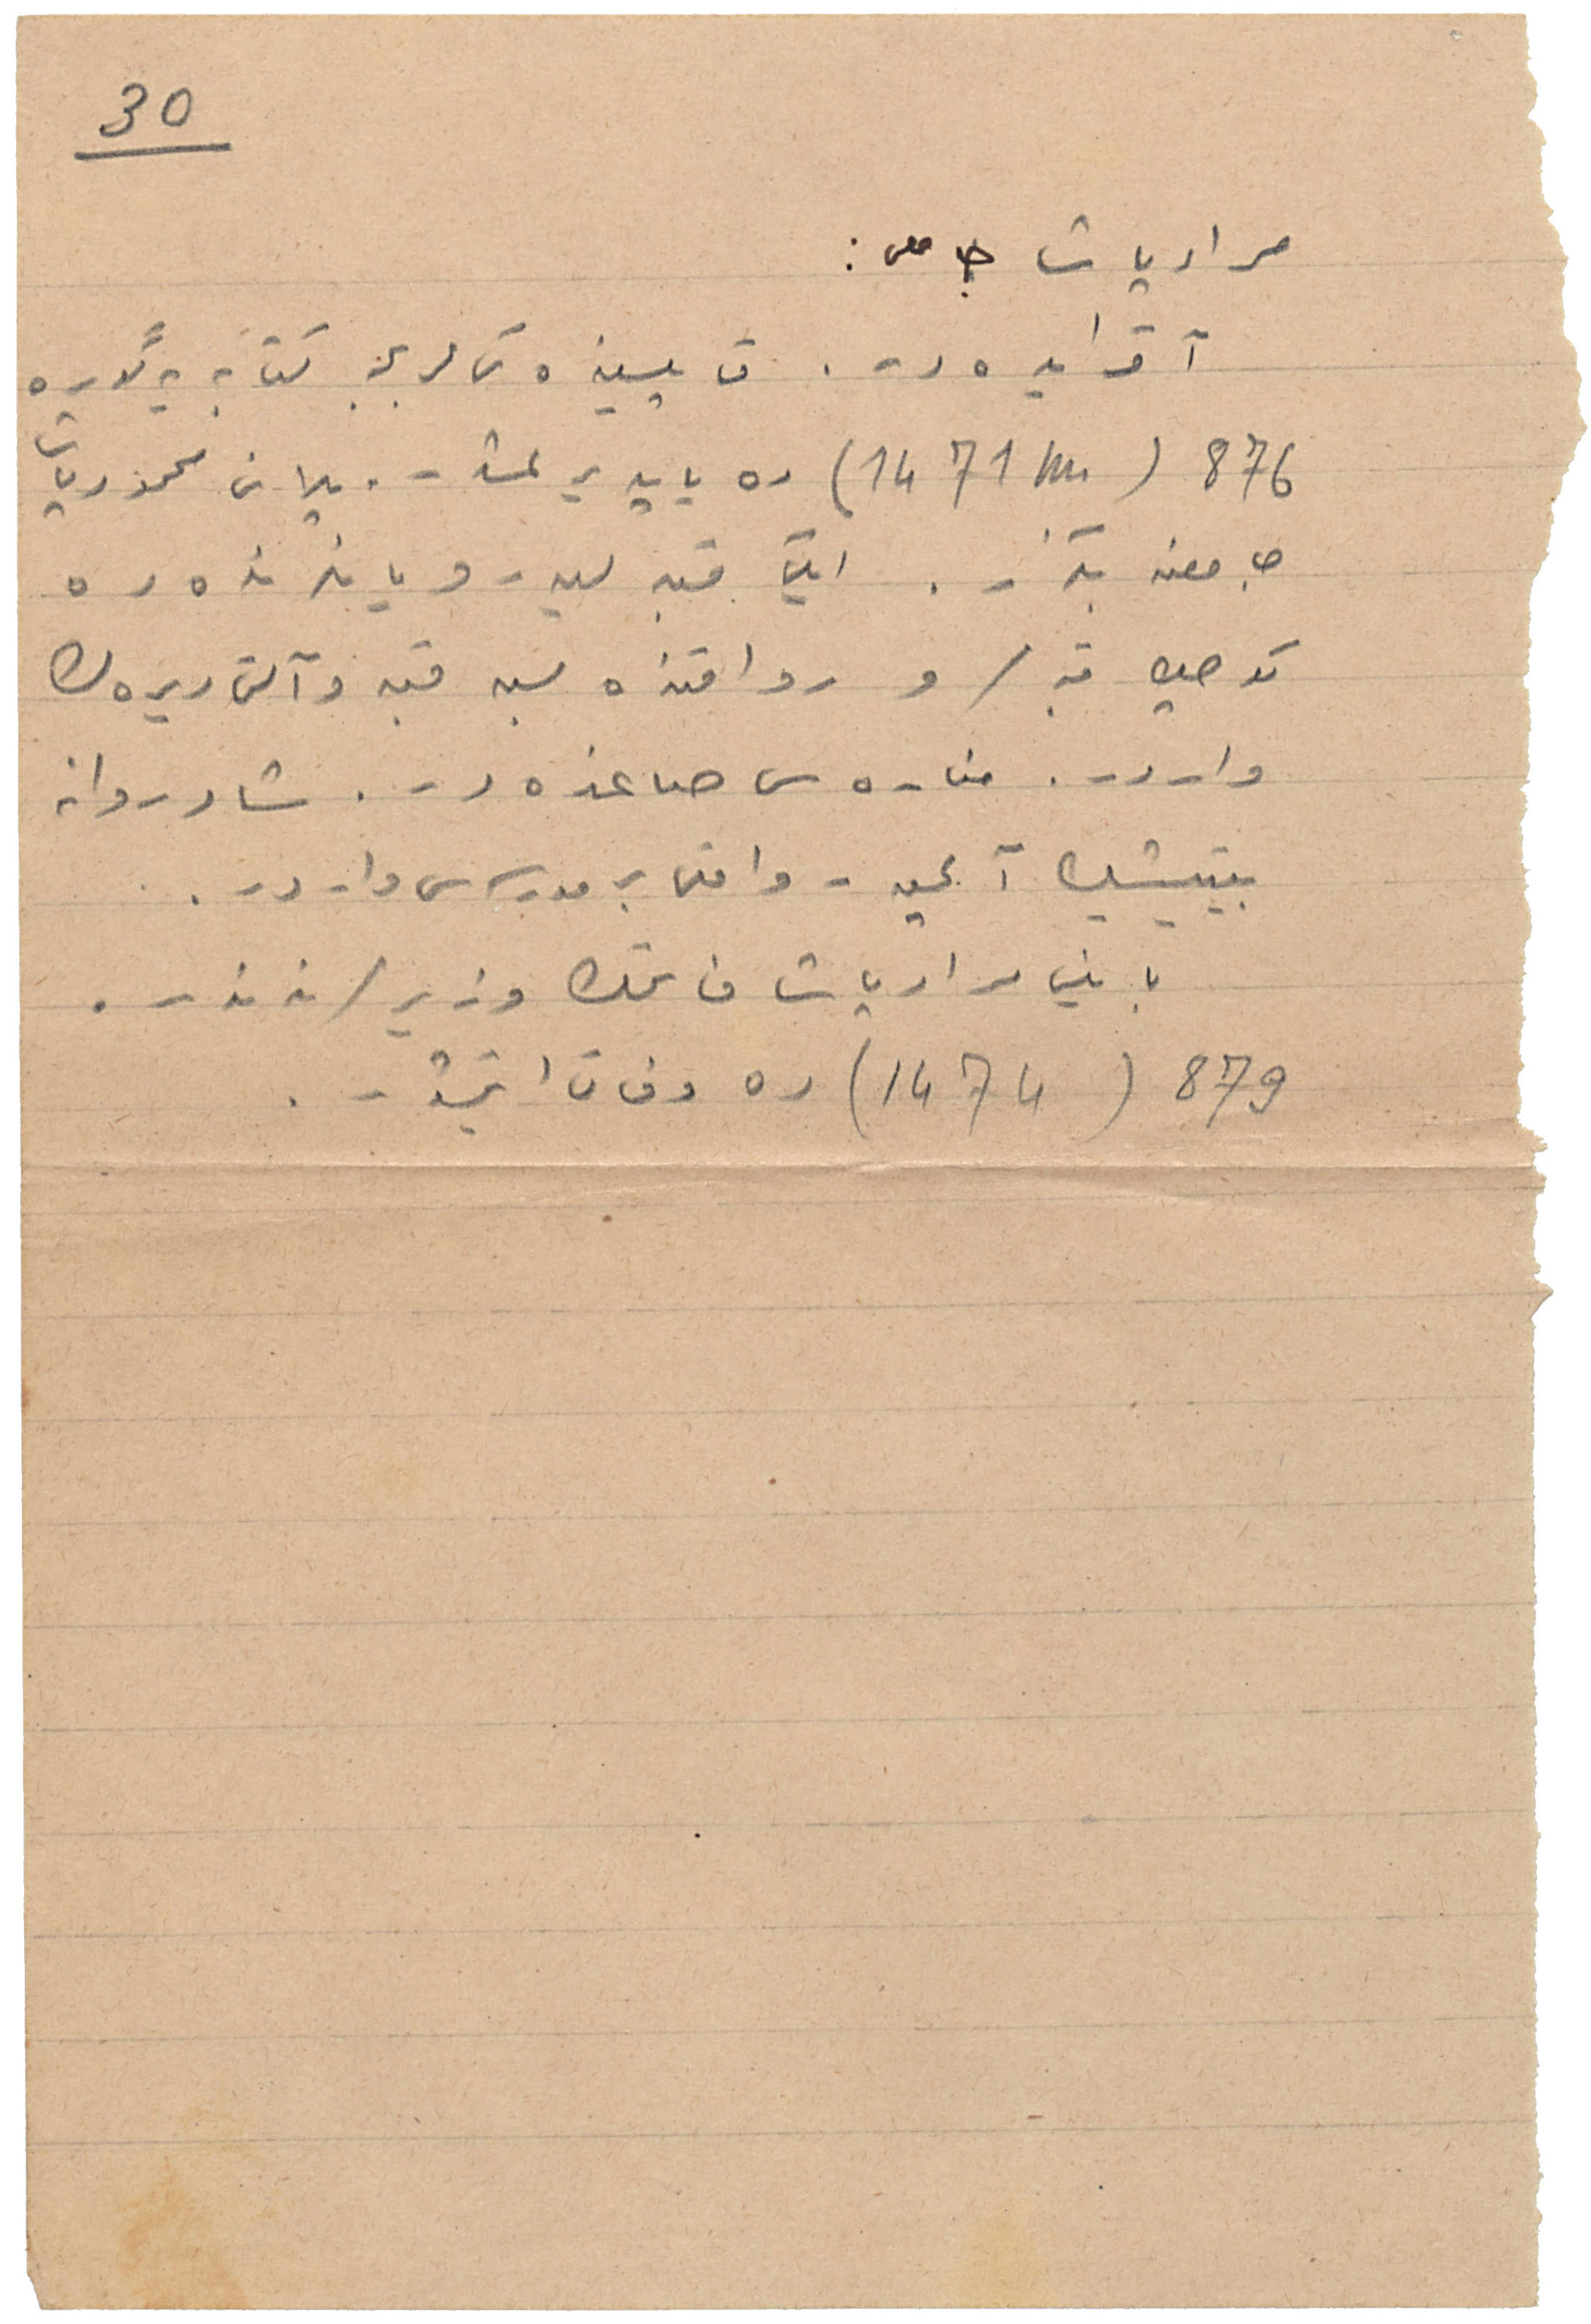 30
مراد پاشا جامعی :
آقسرایده در . قاپیسنده کی عربجه کتابه یه گوره
876 (1471 m) ده یاپدیرلمشدر . پلانی محمود پاشا
جامعنه بکزر . ایکی قبه لیدر و یانلرنده ده
کوچک قبه لر و رواقنده بش قبه و آلتی دیرهك
واردر . مناره سی صاغنده در . شادروانه
بیتیشیك آلچیدر واقعی بر مدرسه سی واردر .
بانیسی مراد پاشا فاتحك وزیرلرندندر .
879 (1474) ده وفات ایتمشدر .